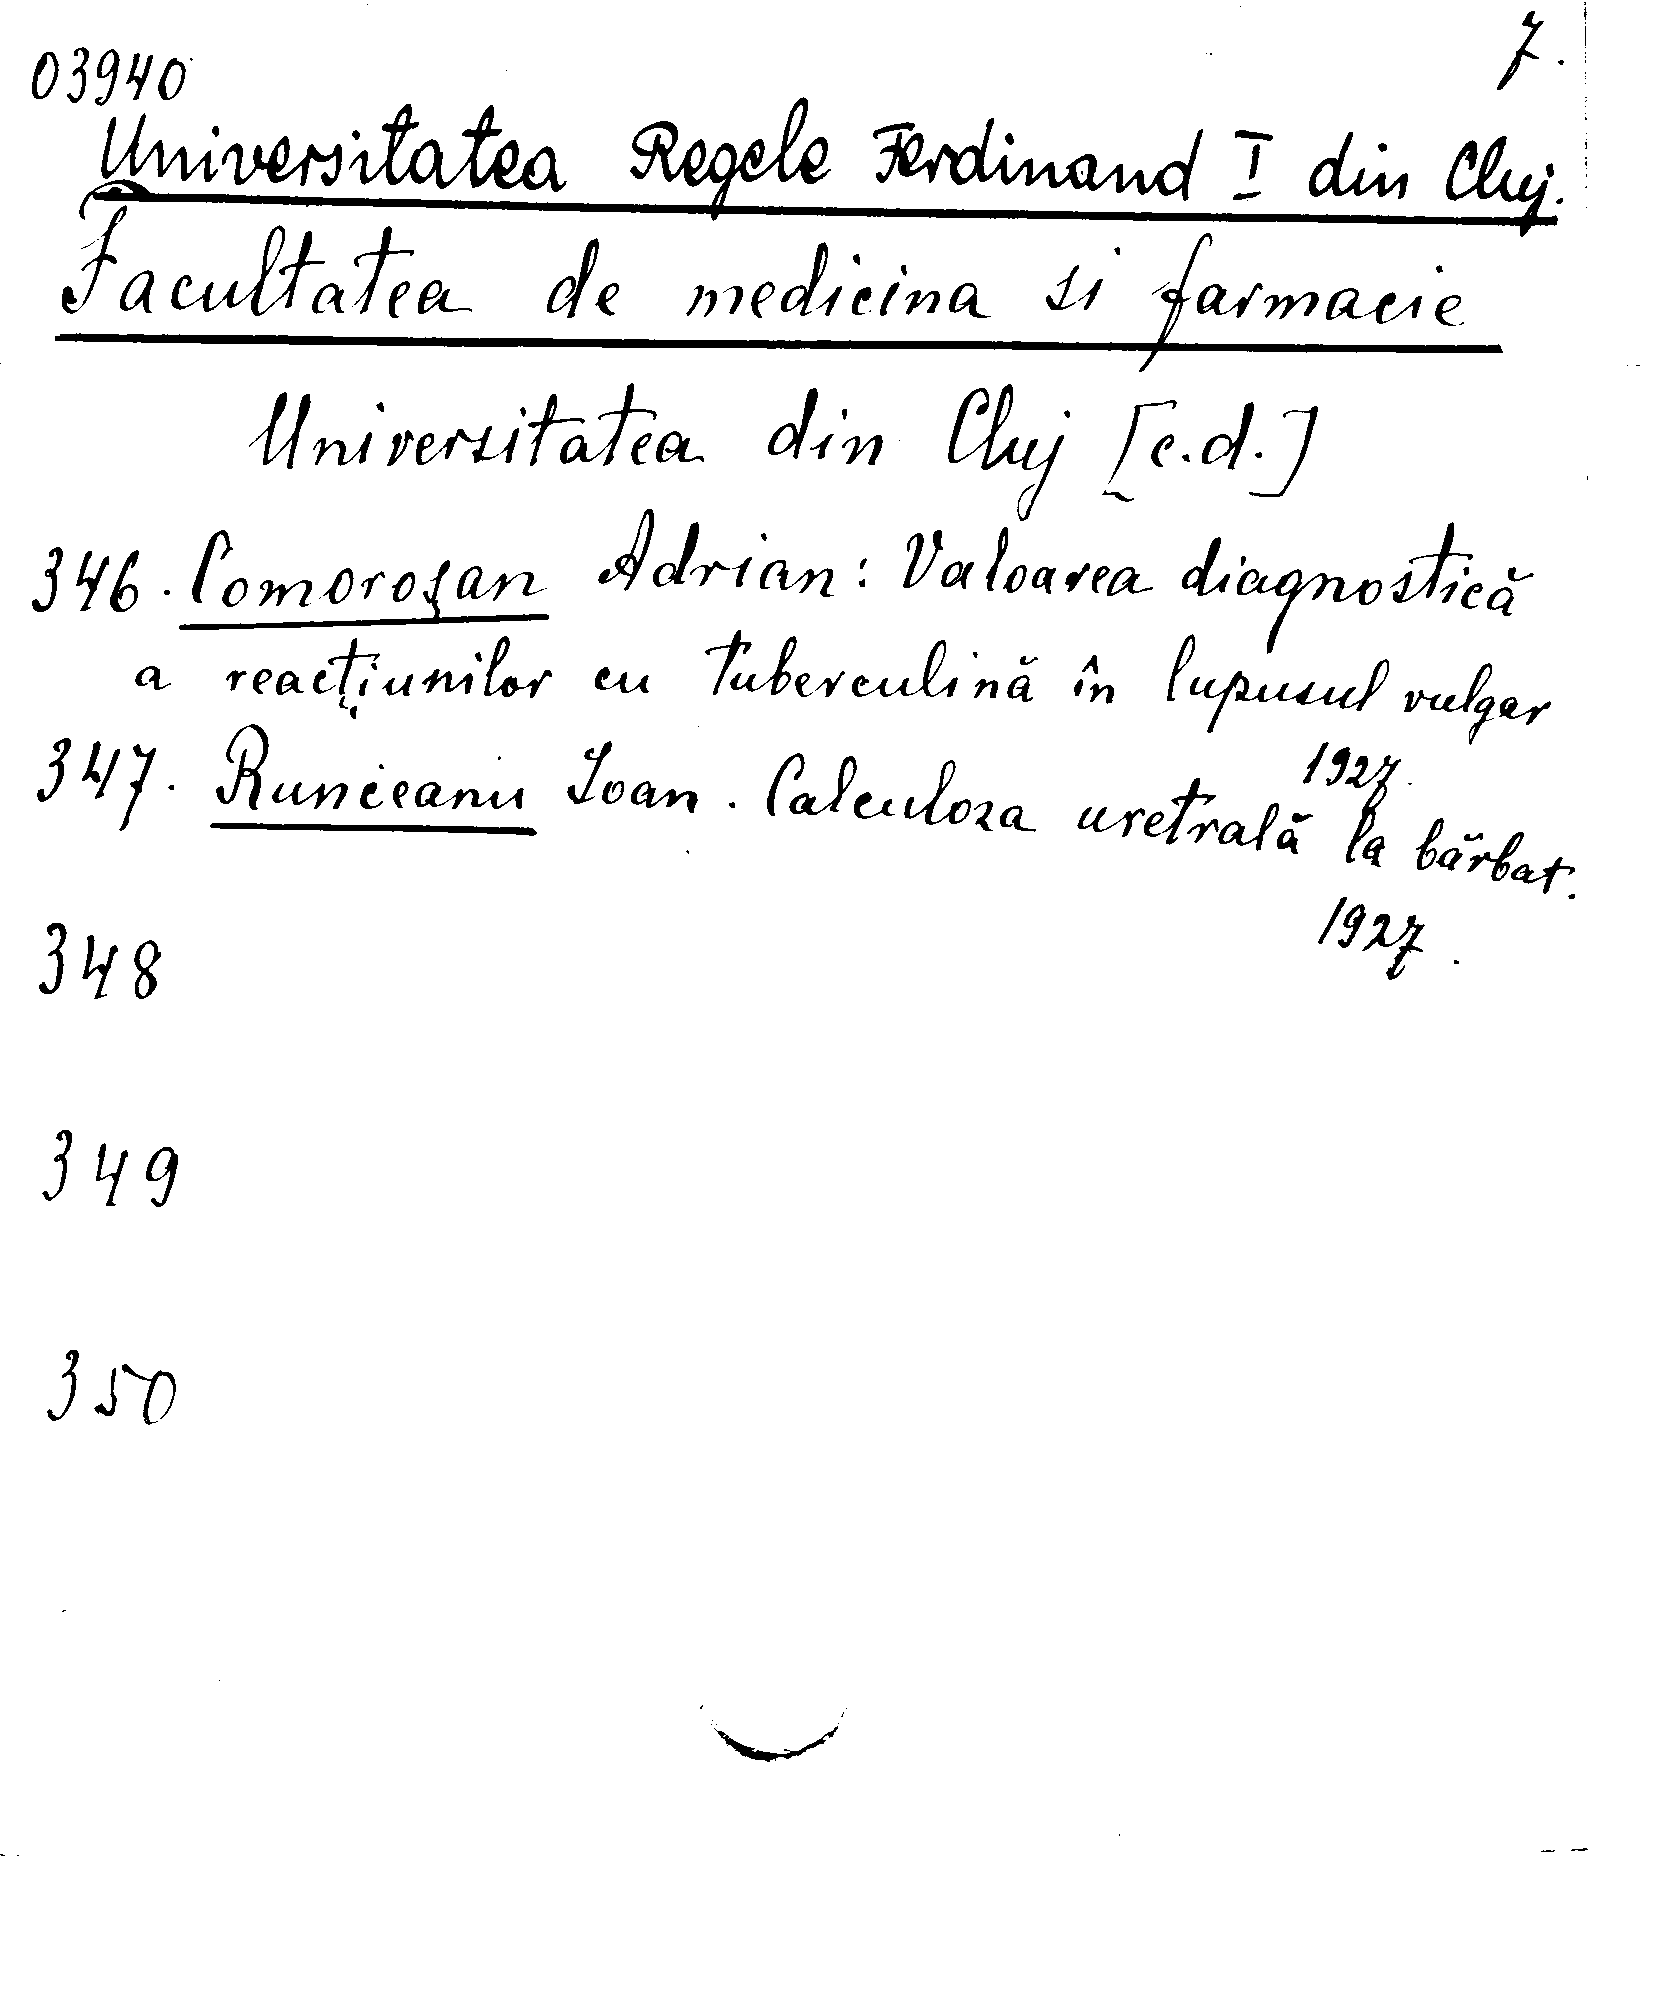 03940 7.
Universitatea Regele Ferdinand I din Cluj.
Facultatea de medicina si farmacie
Universitatea din Cluj [c.d.]
346. Comoroşan Adrian: Valoarea diagnostică
a reacţiunilor cu tuberculină în lupusul vulgar
1927.
347. Runceanu Ioan. Calculoza uretrală la bărbat.
1927.
348
349
350